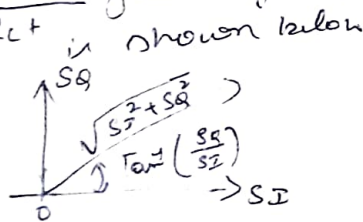 is shown below
SQ
√SI² + SQ²
Tan⁻¹ (SQ/SI)
→ SI
0